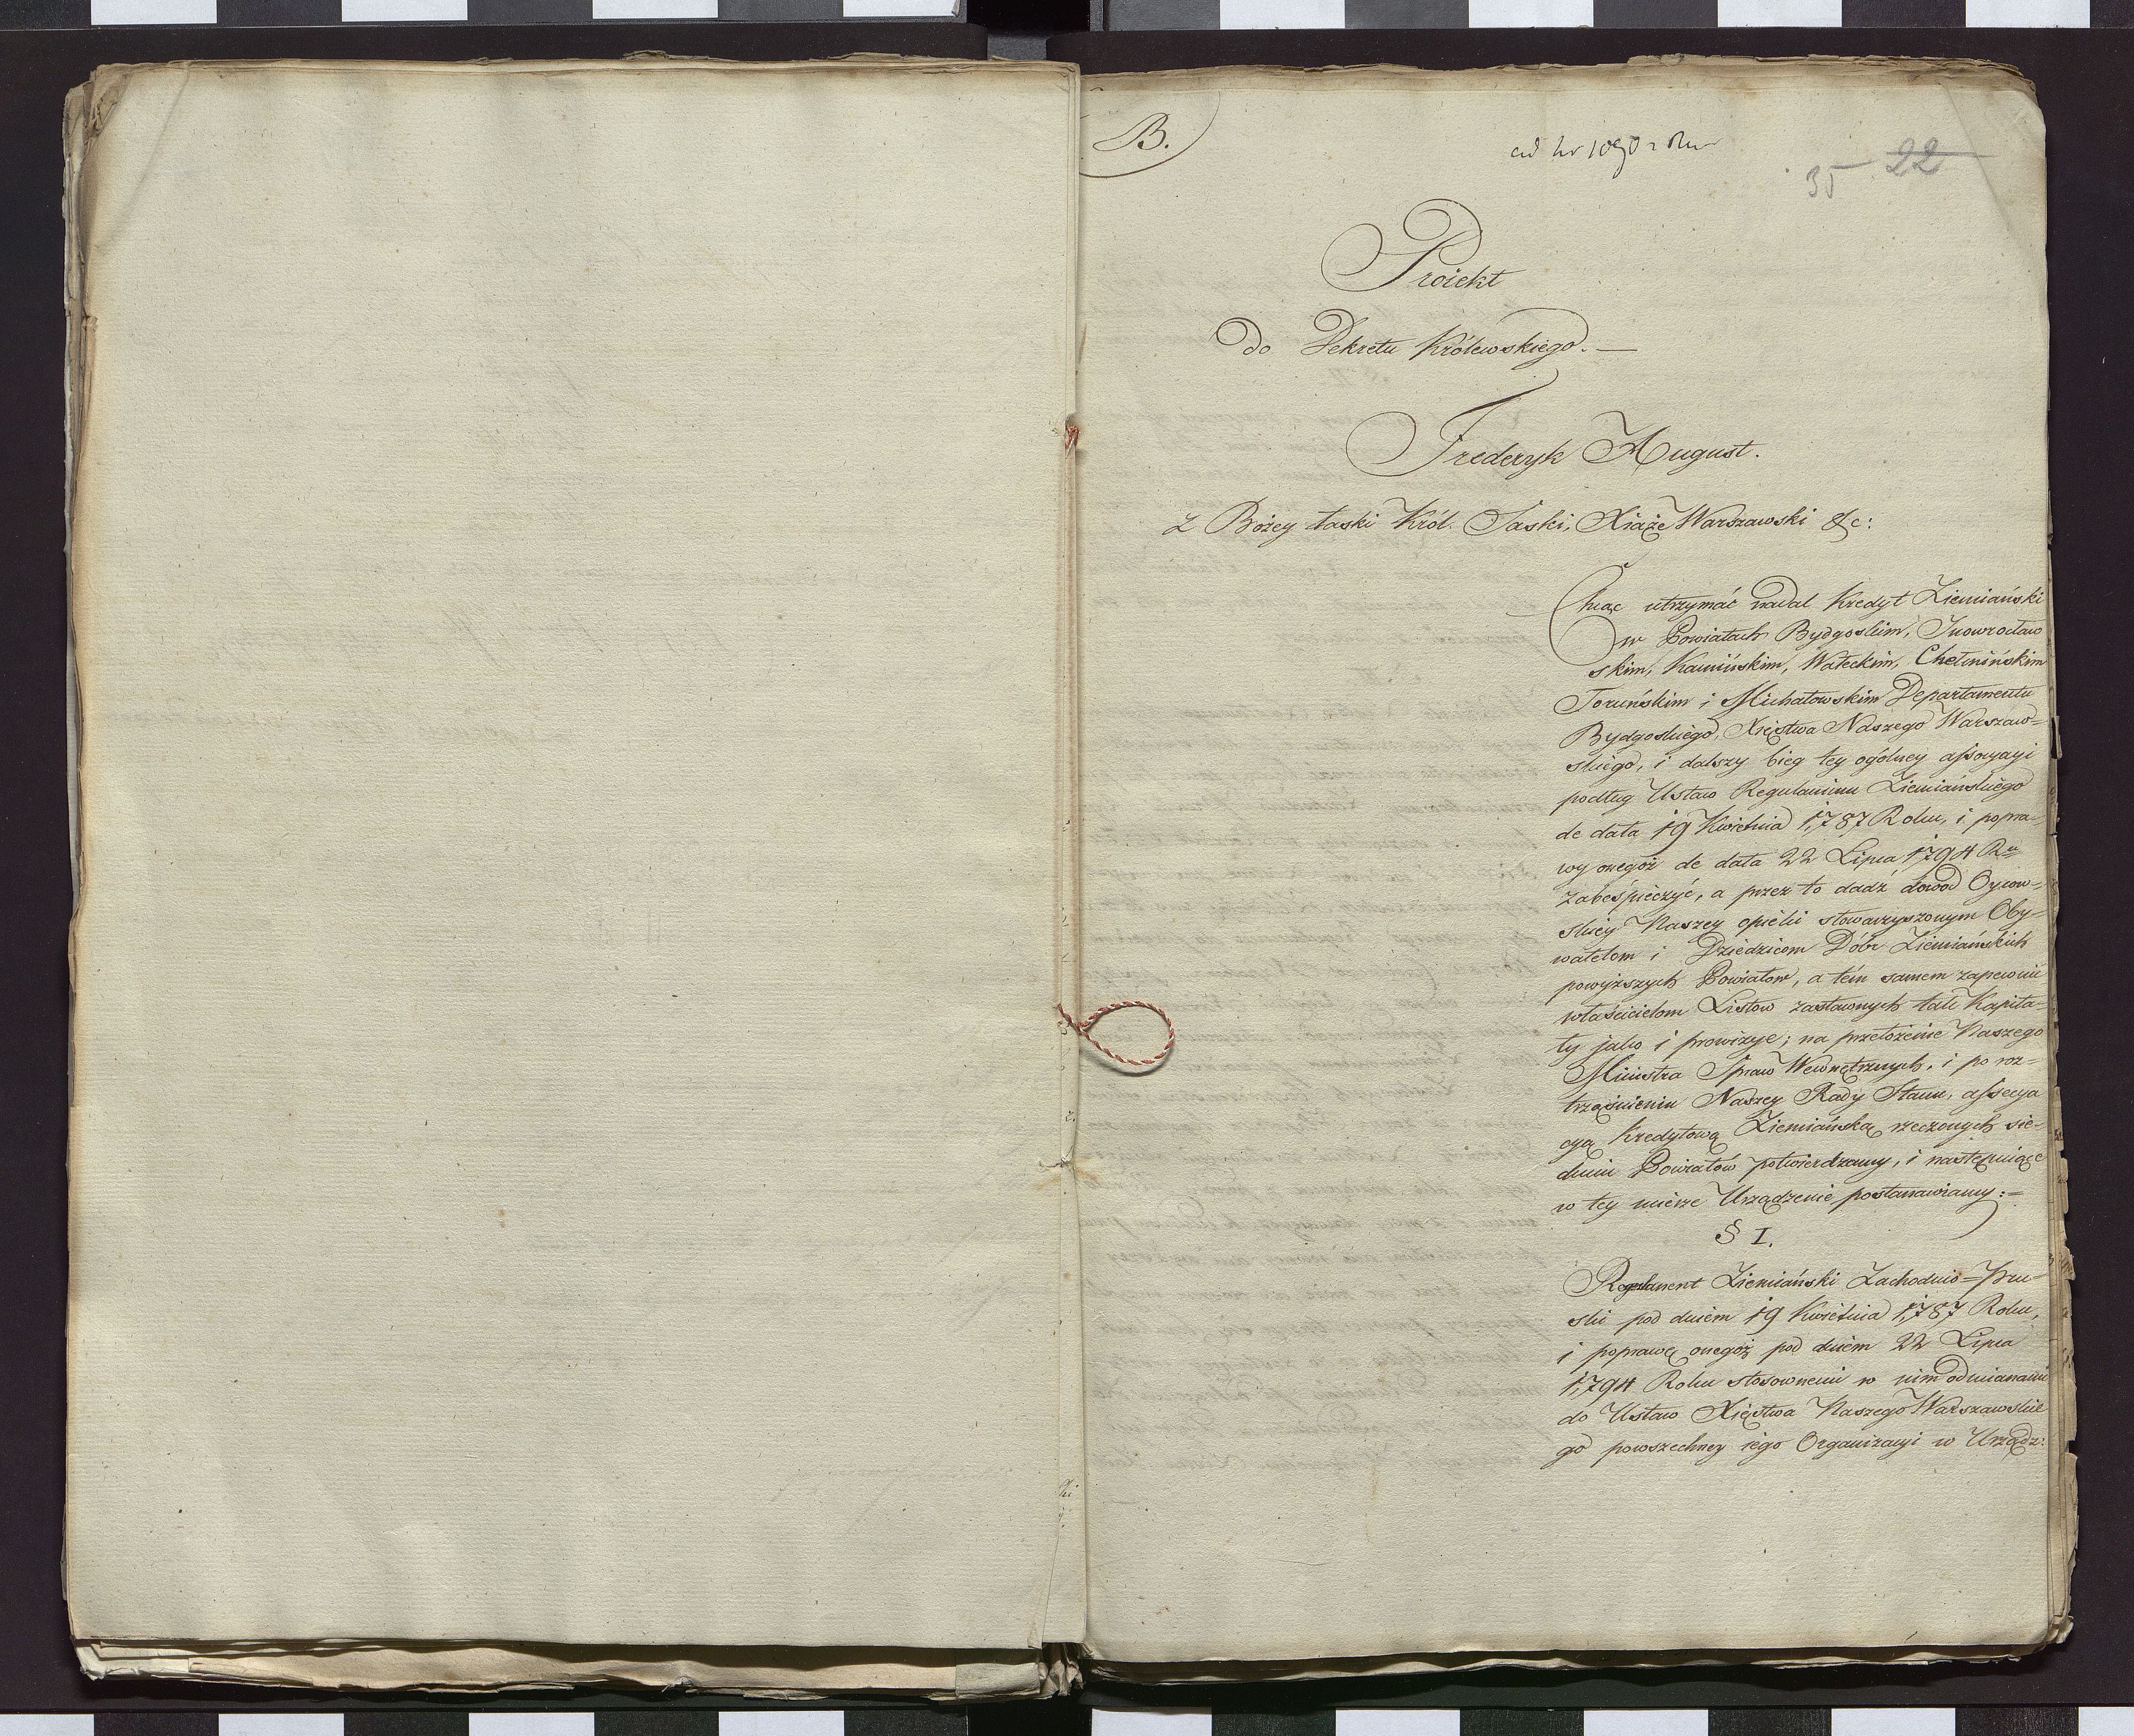 B.
ad
35 22
Proiekt
do Dekretu Królewskiego. —
Frederyk August.
z Bożey łaski Król Saski, Xiąże Warszawski &c:
Chcąc utrzymać nadal Kredyt Ziemiański
w Powiatach Bydgoskim, Inowrocław
skim, Kamińskim, Wałeckim, Chełmińskim
Toruńskim i Michałowskim Departamentu
Bydgoskiego, Xięstwa Naszego Warszaw=
skiego, i dalszy bieg tey ogólney assocyacyi
podług Ustaw Regulaminu Ziemiańskiego
de data 19 Kwietnia 1787 Roku, i popra=
wy onegoż de data 22 Lipca 1794 Ru
zabeśpieczyć, a przez to dadź dowod Oycow=
skiey Naszey opieki stowarzyszonym Oby=
watelom i Dziedzicom Dóbr Ziemiańskich
powyższych Powiatow, a tém samem zapewnić
właścicielom Listow zastawnych tak Kapita=
ły jako i prowizye; na przełożenie Naszego
Ministra Spraw Wewnętrznych, i po roz=
trząśnieniu Naszey Rady Stanu,
cyą Kredytową Ziemiańską rzeczonych sie=
dmiu Powiatów potwierdzamy, i następuiące
w tey mierze Urządzenie postanawiamy:=
§ I.
Regulament Ziemiański Zachodnio=Pru=
ski pod dniem 19 Kwietnia 1787 Roku,
i poprawę onegoż pod dniem 22 Lipca
1794 Roku stosownemi w nim odmianami
do Ustaw Xięstwa Naszego Warszawskie
go powszechney iego Organizacyi w Urządz: